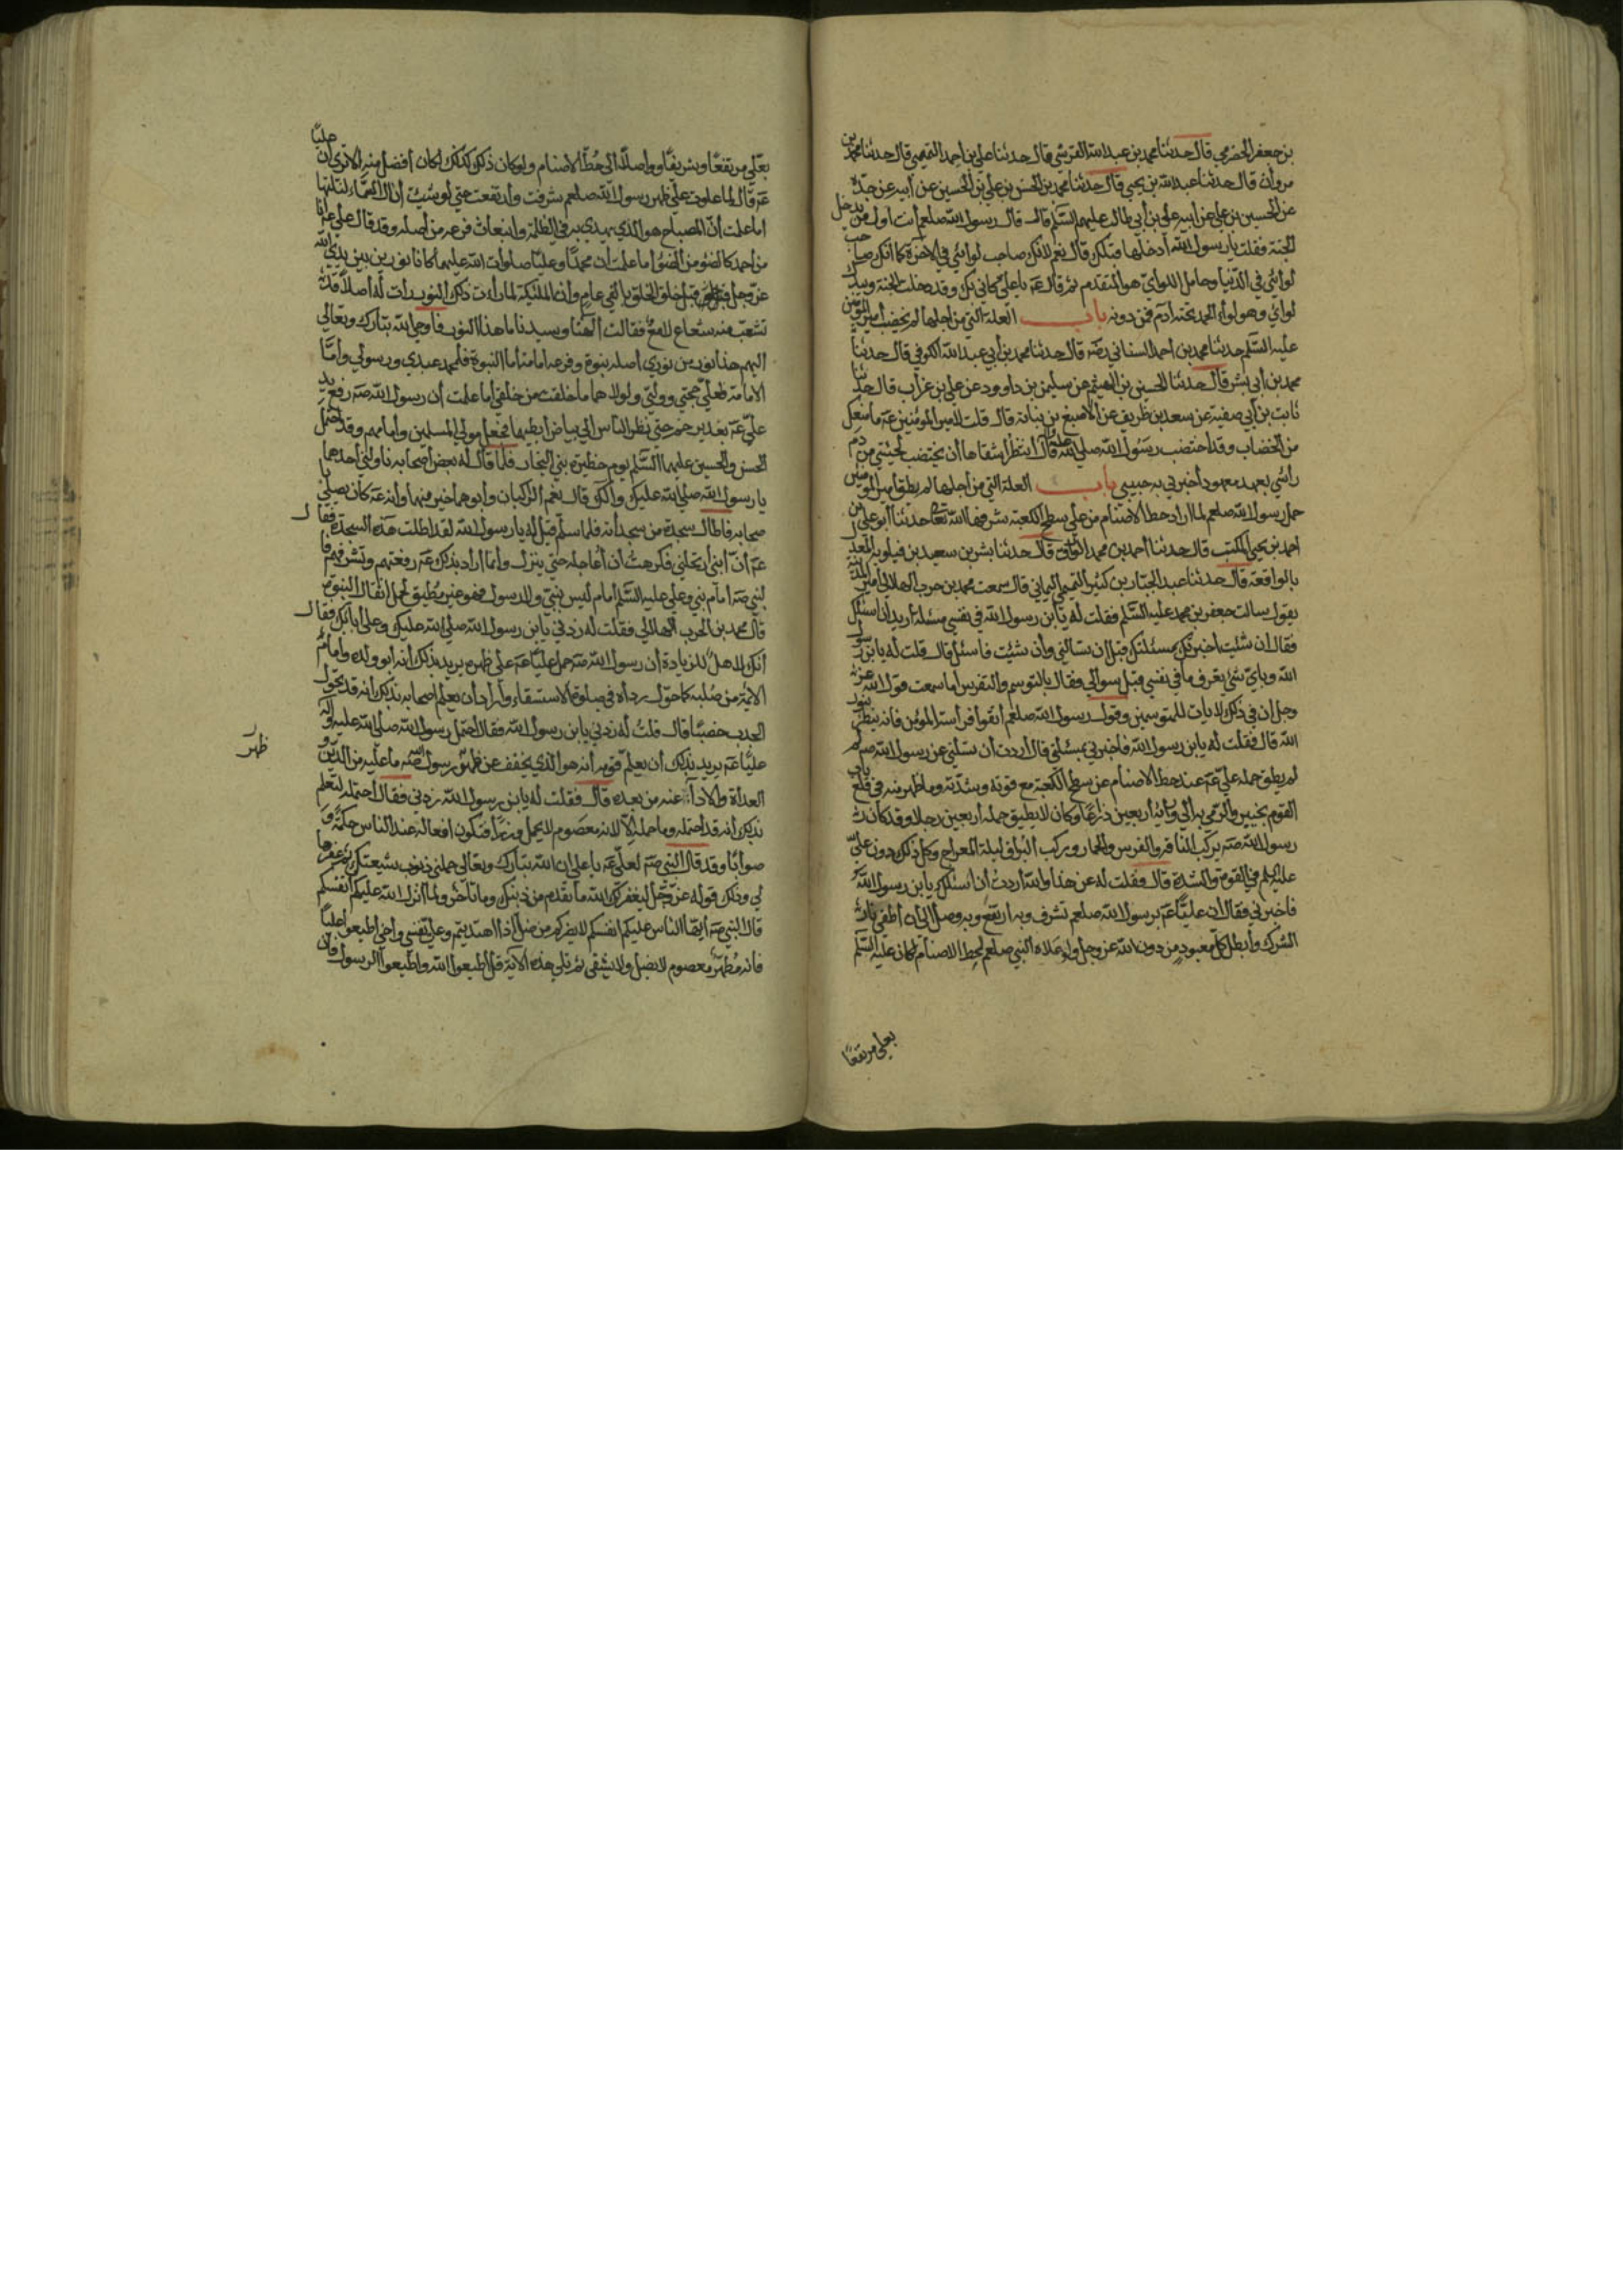 بن جعفر الحضرمي قال حدثنا محمد بن عبد الله القرشي قال حدثنا علي بن احمد التميمي قال حدثنا محمد بن
مروان قال حدثنا عبد الله بن يحيى قال حدثنا محمد بن الحسين بن علي بن الحسين عن أبيه عن جده
عن الحسين بن علي عن أبيه علي بن أبي طالب عليهم السلم قال قال رسول الله صلعم أنت أول من يدخل
الجنة فقلت يا رسول الله أدخلها قبلك قال نعم لانك صاحب لوائي في الاخرة كما انك صاحب
لوائي في الدنيا وحامل اللواي هو المتقدم ثم قال عم يا علي كاني بك وقد دخلت الجنة وبيدك
لوائي وهو لواء الحمد تحته آدم فمن دونه باب العلة التي من اجلها لم يخضب أمير المؤمنين
عليه السلم حدثنا محمد بن احمد السناني رضه قال حدثنا محمد بن أبي عبد الله الكوفي قال حدثنا
محمد بن أبي بشر قال حدثنا الحسين بن الهيثم عن سليمن بن داوود عن علي بن غراب قال حدثنا
ثابت بن أبي صفية عن سعد بن ظريف عن الاصبغ بن نباتة قال قلت لامير المؤمنين عم ما منعك
من الخضاب وقد اختضب رسول الله صلي الله عليه وآله قال انتظر أشقاها أن يختضب لحيتي من دم
رأسي بعهد معهود أخبرني به حبيبي باب العلة التي من أجلها لم يطق أمير المؤمنين
حمل رسول الله صلعم لما اراد حط الاصنام من علي سطح الكعبة شرفها الله تعا حدثنا أبو علي
احمد بن يحيى المكتب قال حدثنا أحمد بن محمد الوراق قال حدثنا بشر بن سعيد بن قيلويه المعدل
بالواقعة قال حدثنا عبد الجبار بن كثير التميمي اليماني قال سمعت محمد بن حرب الهلالي أمير المدينة
يقول سالت جعفر بن محمد عليه السلم فقلت له يا ابن رسول الله في نفسي مسئلة أريد ان اسئلك
فقال ان شئت أخبرتك بمسئلتك قبل ان تسالني وأن شئت فاسئل قال قلت له يا بن رسول
الله وباي شئ تعرف ما في نفسي قبل سوالي فقال بالتوسم والتفرس أما سمعت قول الله عز
وجل ان في ذلك لايات للمتوسمين وقول رسول الله صلعم أتقوا فراسة المؤمن فانه ينظر بنور
الله قال فقلت له يا بن رسول الله فاخبرني بمسئلتي قال أردت أن تسئلني عن رسول الله صلعم
لم يطق حمله علي عم عند حط الاصنام عن سطح الكعبة مع قوته وشدته وما ظهر منه في قلع باب
القوم بخيبر والرمي به الي ورائه أربعين ذراعا وكان لا يطيق حمله أربعين رجلا وقد كان
رسول الله صه يركب الناقة والفرس والحمار ويركب البراق ليلة المعراج وكل ذلك دون علي
عليه السلم في القوة والشدة قال فقلت له عن هذا والله أردت أن أسئلك يا ابن رسول الله
فاخبرني فقال ان عليا عم برسول الله صلعم تشرف وبه ارتفع وبه وصل الي أن أطفى نار
الشرك وأبطل كل معبود من دون الله عز وجل ولو علاه النبي صلعم لحط الاصنام لكان عليه السلم
بعلي مرتفعا
بعلي مرتفعا وشريفا وواصلا الى حط الاصنام ولو كان ذلك كذلك لكان أفضل منه الا ترى أن عليا
عم قال لما علوت علي ظهر رسول الله صلعم شرفت وأرتفعت حتي لو شئت أن أنال السماء لنلتها
اما علمت أن المصباح هو الذي يهتدي به في الظلمة وانبعاث فرعه من أصله وقد قال علي عم أنا
من أحمد كالضوء من الضوء أما علمت أن محمدا وعليا صلوات الله عليهما كانا نورين بين يدي الله
عز وجل قبل خلق الخلق بالفي عام وأن الملئكة لما رأت ذلك النور رأت له أصلا قد
تشعب منه شعاع لامع فقالت الهنا وسيدنا ما هذا النور فاوحي الله تبارك وتعالي
اليهم هذا نور من نوري أصله نبوة وفرعه امامة أما النبوة فلمحمد عبدي ورسولي وأما
الامامة فلعلي حجتي ووليي ولولاهما ما خلقت من خلقي أما علمت أن رسول الله صه رفع يد
علي عم بغدير خم حتي نظر الناس الي بياض أبطيهما فجعله مولي المسلمين وامامهم وقد احتمل
الحسن والحسين عليهما السلم يوم حظيرة بني النجار فلما قال له بعض أصحابه ناولني أحدهما
يا رسول الله صلي الله عليك وآلك قال نعم الراكبان وأبوهما خير منهما وأنه عم كان يصلي
باصحابه فاطال سجدة من سجداته فلما سلم قيل له يا رسول الله لقد اطلت هذه السجدة فقال
عم أن أبني أرتحلني فكرهت أن أعاجله حتي ينزل وأنما أراد بذلك عم رفعتهم وتشريفهم
فالنبي صه امام نبي وعلي عليه السلم أمام ليس بنبي ولا رسول فهو غير مطيق لحمل أثقال النبوة
قال محمد بن الحرب الهلالي فقلت له زدني يا بن رسول الله صلي الله عليك وعلى آبائك فقال
أنك لاهل للزيادة أن رسول الله صه حمل عليا عم علي ظهره يريد بذلك أنه أبو ولده وأمام
الائمة من صلبه كما حول رداءه في صلوة الاستسقاء وأراد أن يعلم اصحابه بذلك أنه قد تحول
الجدب خصبا قال قلت له زدني يا بن رسول الله فقال احتمل رسول الله صلي الله عليه وآله
عليا عم يريد بذلك أن يعلم قومه أنه هو الذي يخفف عن ظهر رسول الله صه ما عليه من الدين و
ظهر
العداة والاداء عنه من بعده قال فقلت له يا بن رسول الله زدني فقال أحتمله ليعلم
بذلك أنه قد أحتمله وما حمله الا لانه معصوم لا يحمل وزرا فتكون افعاله عند الناس حكمة و
صوابا وقد قال النبي صه لعلي عم يا علي ان الله تبارك وتعالى حملني ذنوب شيعتك ثم غفرها
لي وذلك قوله عز وجل ليغفر لك الله ما تقدم من ذنبك وما تاخر ولما أنزل الله عليكم أنفسكم
قال النبي صه ايها الناس عليكم انفسكم لا يضركم من ضل أذا اهتديتم وعلي نفسي وأخي اطيعوا عليا
فانه مطهر معصوم لا يضل ولا يشقى ثم تلي هذه الاية قل أطيعوا الله وأطيعوا الرسول فان